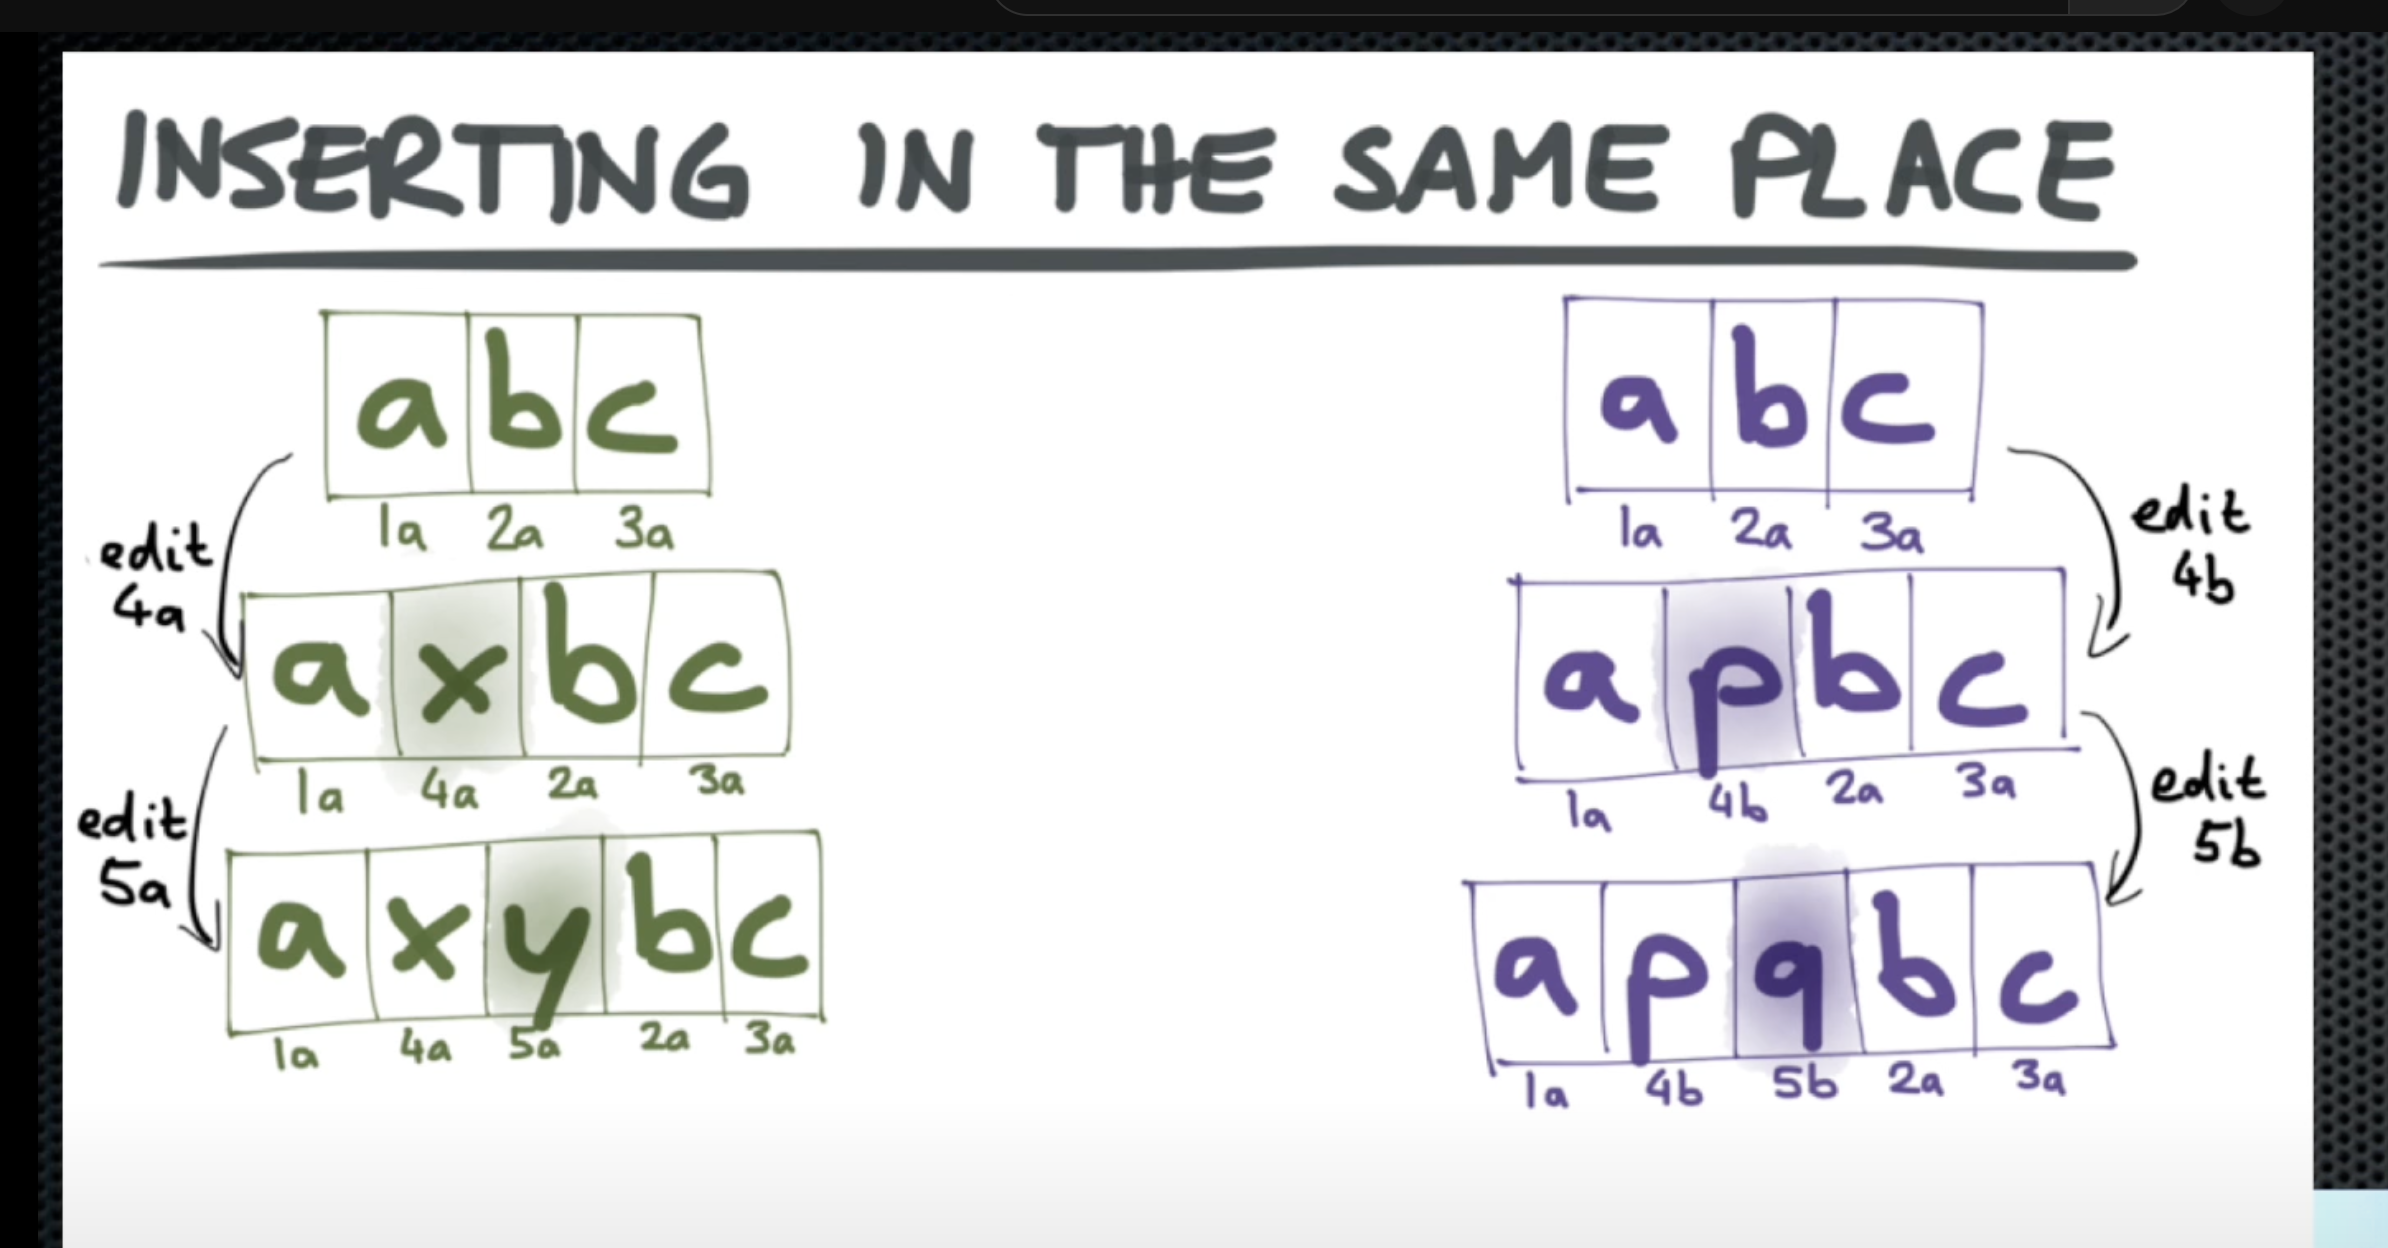 INSERTING IN THE SAME PLACE
a b c
1a 2a 3a
edit
4a
a x b c
1a 4a 2a 3a
edit
5a
a x y b c
1a 4a 5a 2a 3a
a b c
1a 2a 3a
edit
4b
a p b c
1a 4b 2a 3a
edit
5b
a p q b c
1a 4b 5b 2a 3a